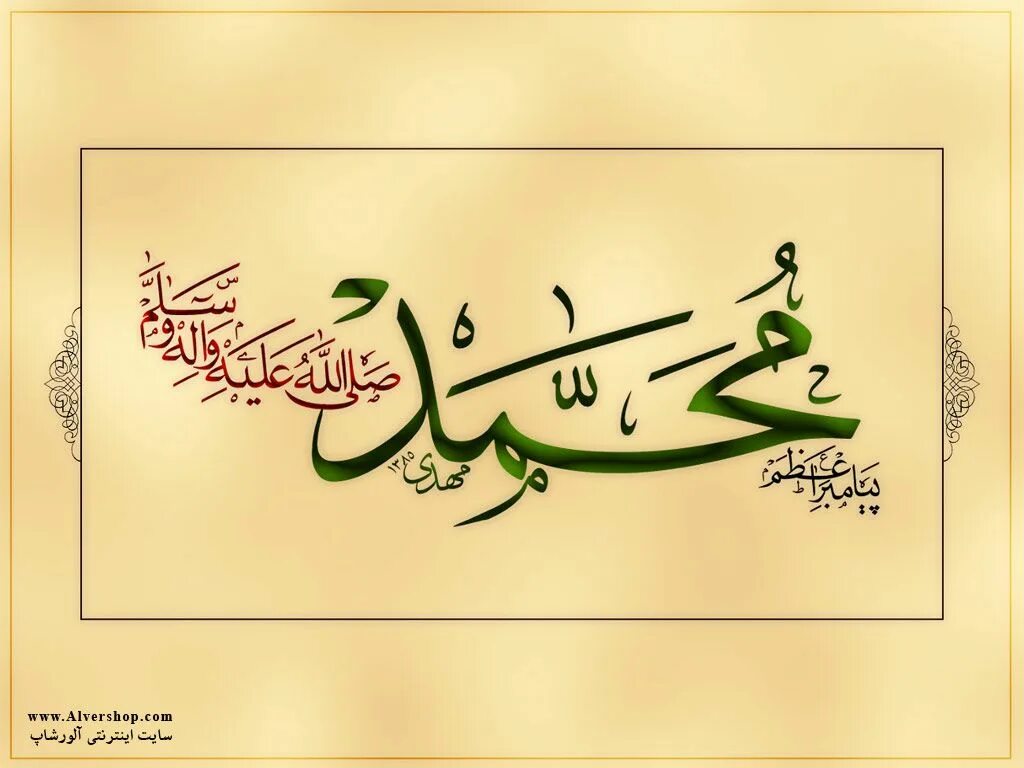 پیامبر اعظم
مُحَمَّد
صَلَی اللَّهُ عَلَیْهِ وَآلِهِ وَسَلَّمَ
مهدی ۱۳۸۵
www.Alvershop.com
سایت اینترنتی آلورشاپ